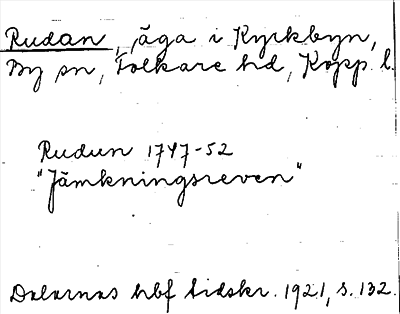 Rudan, äga i Kyrkbyn,
By sn, Folkare hd, Kopp. l.
Rudun 1747-52
"Jämkningsreven"
Dalarnas hbf tidskr. 1921, s. 132.